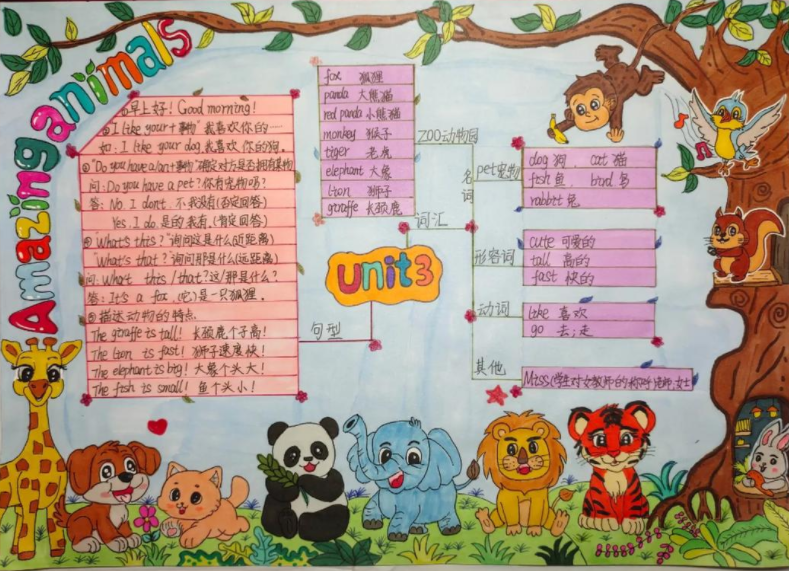 Amazing animals
①早上好! Good morning!
②"I like your+事物"我喜欢你的…
如: I like your dog.我喜欢你的狗。
③"Do you have a/an+事物"确定对方是否拥有某物
问: Do you have a pet?你有宠物吗?
答: No, I don't. 不,我没有.(否定回答)
Yes. I do. 是的,我有.(肯定回答)
④"What's this?"询问这是什么(近距离)
"What's that?询问那是什么(远距离)
问: What this/that?这/那是什么?
答: It's a fox.(它)是一只狐狸.
⑤描述动物的特点
The giraffe is tall! 长颈鹿个子高!
The lion is fast! 狮子速度快!
The elephant is big! 大象个头大!
The fish is small! 鱼个头小!
句型
Unit3
词汇
fox 狐狸
panda 大熊猫
red panda 小熊猫
monkey 猴子
tiger 老虎
elephant 大象
lion 狮子
giraffe 长颈鹿
ZOO动物园
名词
pet宠物
dog 狗 cat 猫
fish 鱼 bird 鸟
rabbit 兔
形容词
cute 可爱的
tall 高的
fast 快的
动词
like 喜欢
go 去;走
其他
Miss(学生对女教师的称呼)老师,女士